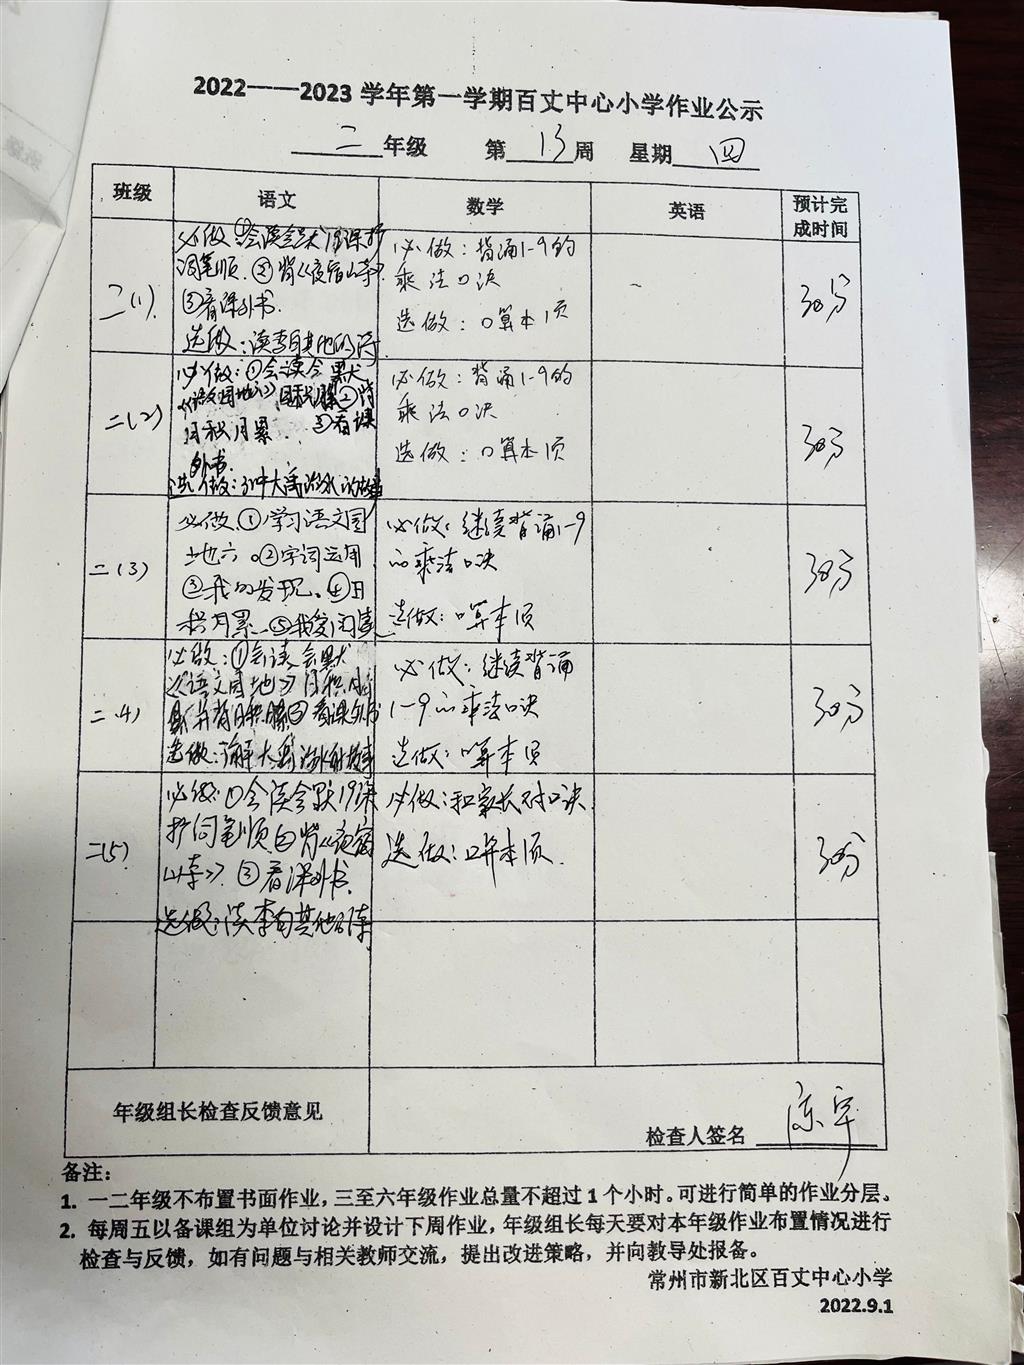 2022——2023 学年第一学期百丈中心小学作业公示
二 年级 第 13 周 星期 四
班级 语文 数学 英语 预计完成时间
二(1)
必做①会读会默19课
词笔顺.②背《夜宿山寺》
③看课外书.
选做:读李白其他的诗
必做:背诵1-9的
乘法口决
选做:口算本1页
30分
二(2)
必做:①会读会默
《语文园地》
日积月累. ③看课
外书.
选做:
必做:背诵1-9的
乘法口决
选做:口算本1页
30分
二(3)
必做①学习语文园
地六。②字词运用
③我的发现、④日
积月累 ⑤我爱阅读
必做:继续背诵1-9
的乘法口决
选做:口算本1页
30分
二(4)
必做:①会读会默
《语文园地》日积月
看课外书
选做:了解大禹治水的故事
必做:继续背诵
1-9的乘法口决
选做:口算本1页
30分
二(5)
必做:①会读会默19课
词笔顺②背《夜宿
山寺》③看课外书.
选做:读李白其他的诗
必做:和家长对口诀.
选做:口算本1页.
30分
年级组长检查反馈意见
检查人签名
备注:
1. 一二年级不布置书面作业，三至六年级作业总量不超过1个小时。可进行简单的作业分层。
2. 每周五以备课组为单位讨论并设计下周作业，年级组长每天要对本年级作业布置情况进行
检查与反馈，如有问题与相关教师交流，提出改进策略，并向教导处报备。
常州市新北区百丈中心小学
2022.9.1